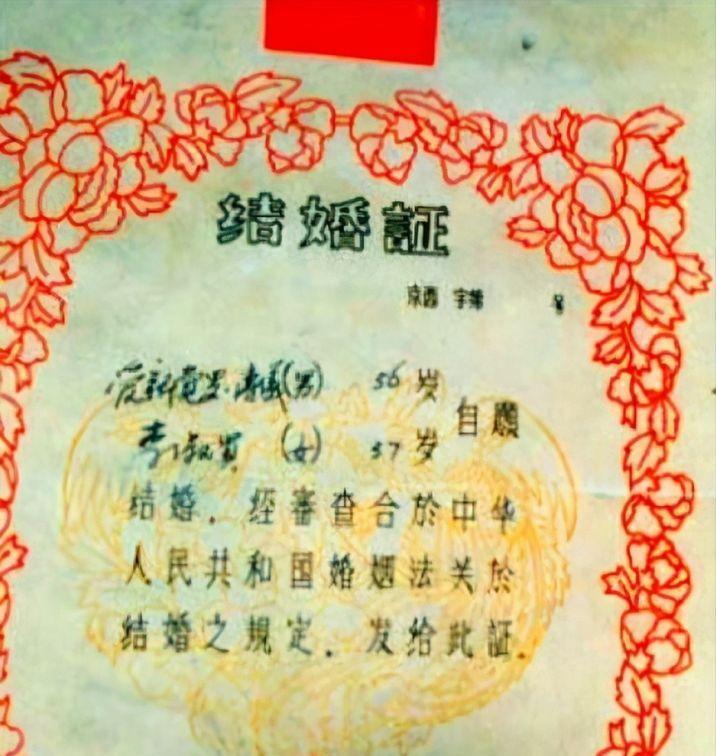 结婚証
京西 字第 号
爱新覚罗·溥儀(男) 56 岁
自願
李淑賢 (女) 37 岁
结婚．经審查合於中华
人民共和国婚姻法关於
结婚之規定．发给此証．